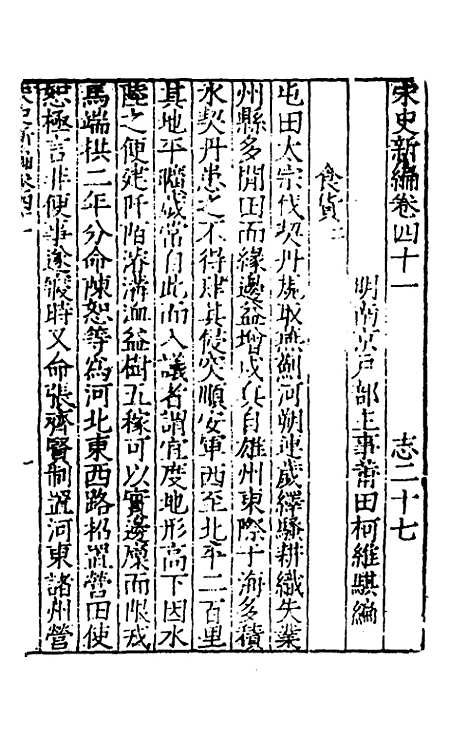 宋史新編卷四十一　志二十七
明南京戶部主事莆田柯維騏編
食貨二
屯田太宗伐契丹規取燕薊河朔連歲繹騷耕織失業
州縣多閒田而緣邊益增戍兵自雄州東際于海多積
水契丹患之不得肆其侵突順安軍西至北平二百里
其地平曠歲常自此而入議者謂宜度地形高下因水
陸之便建阡陌濬溝洫益樹五稼可以實邊廩而限戎
馬端拱二年分命陳恕等爲河北東西路招置營田使
恕極言非便事遂寢時又命張齊賢制置河東諸州營
宋史新編卷四十一
一